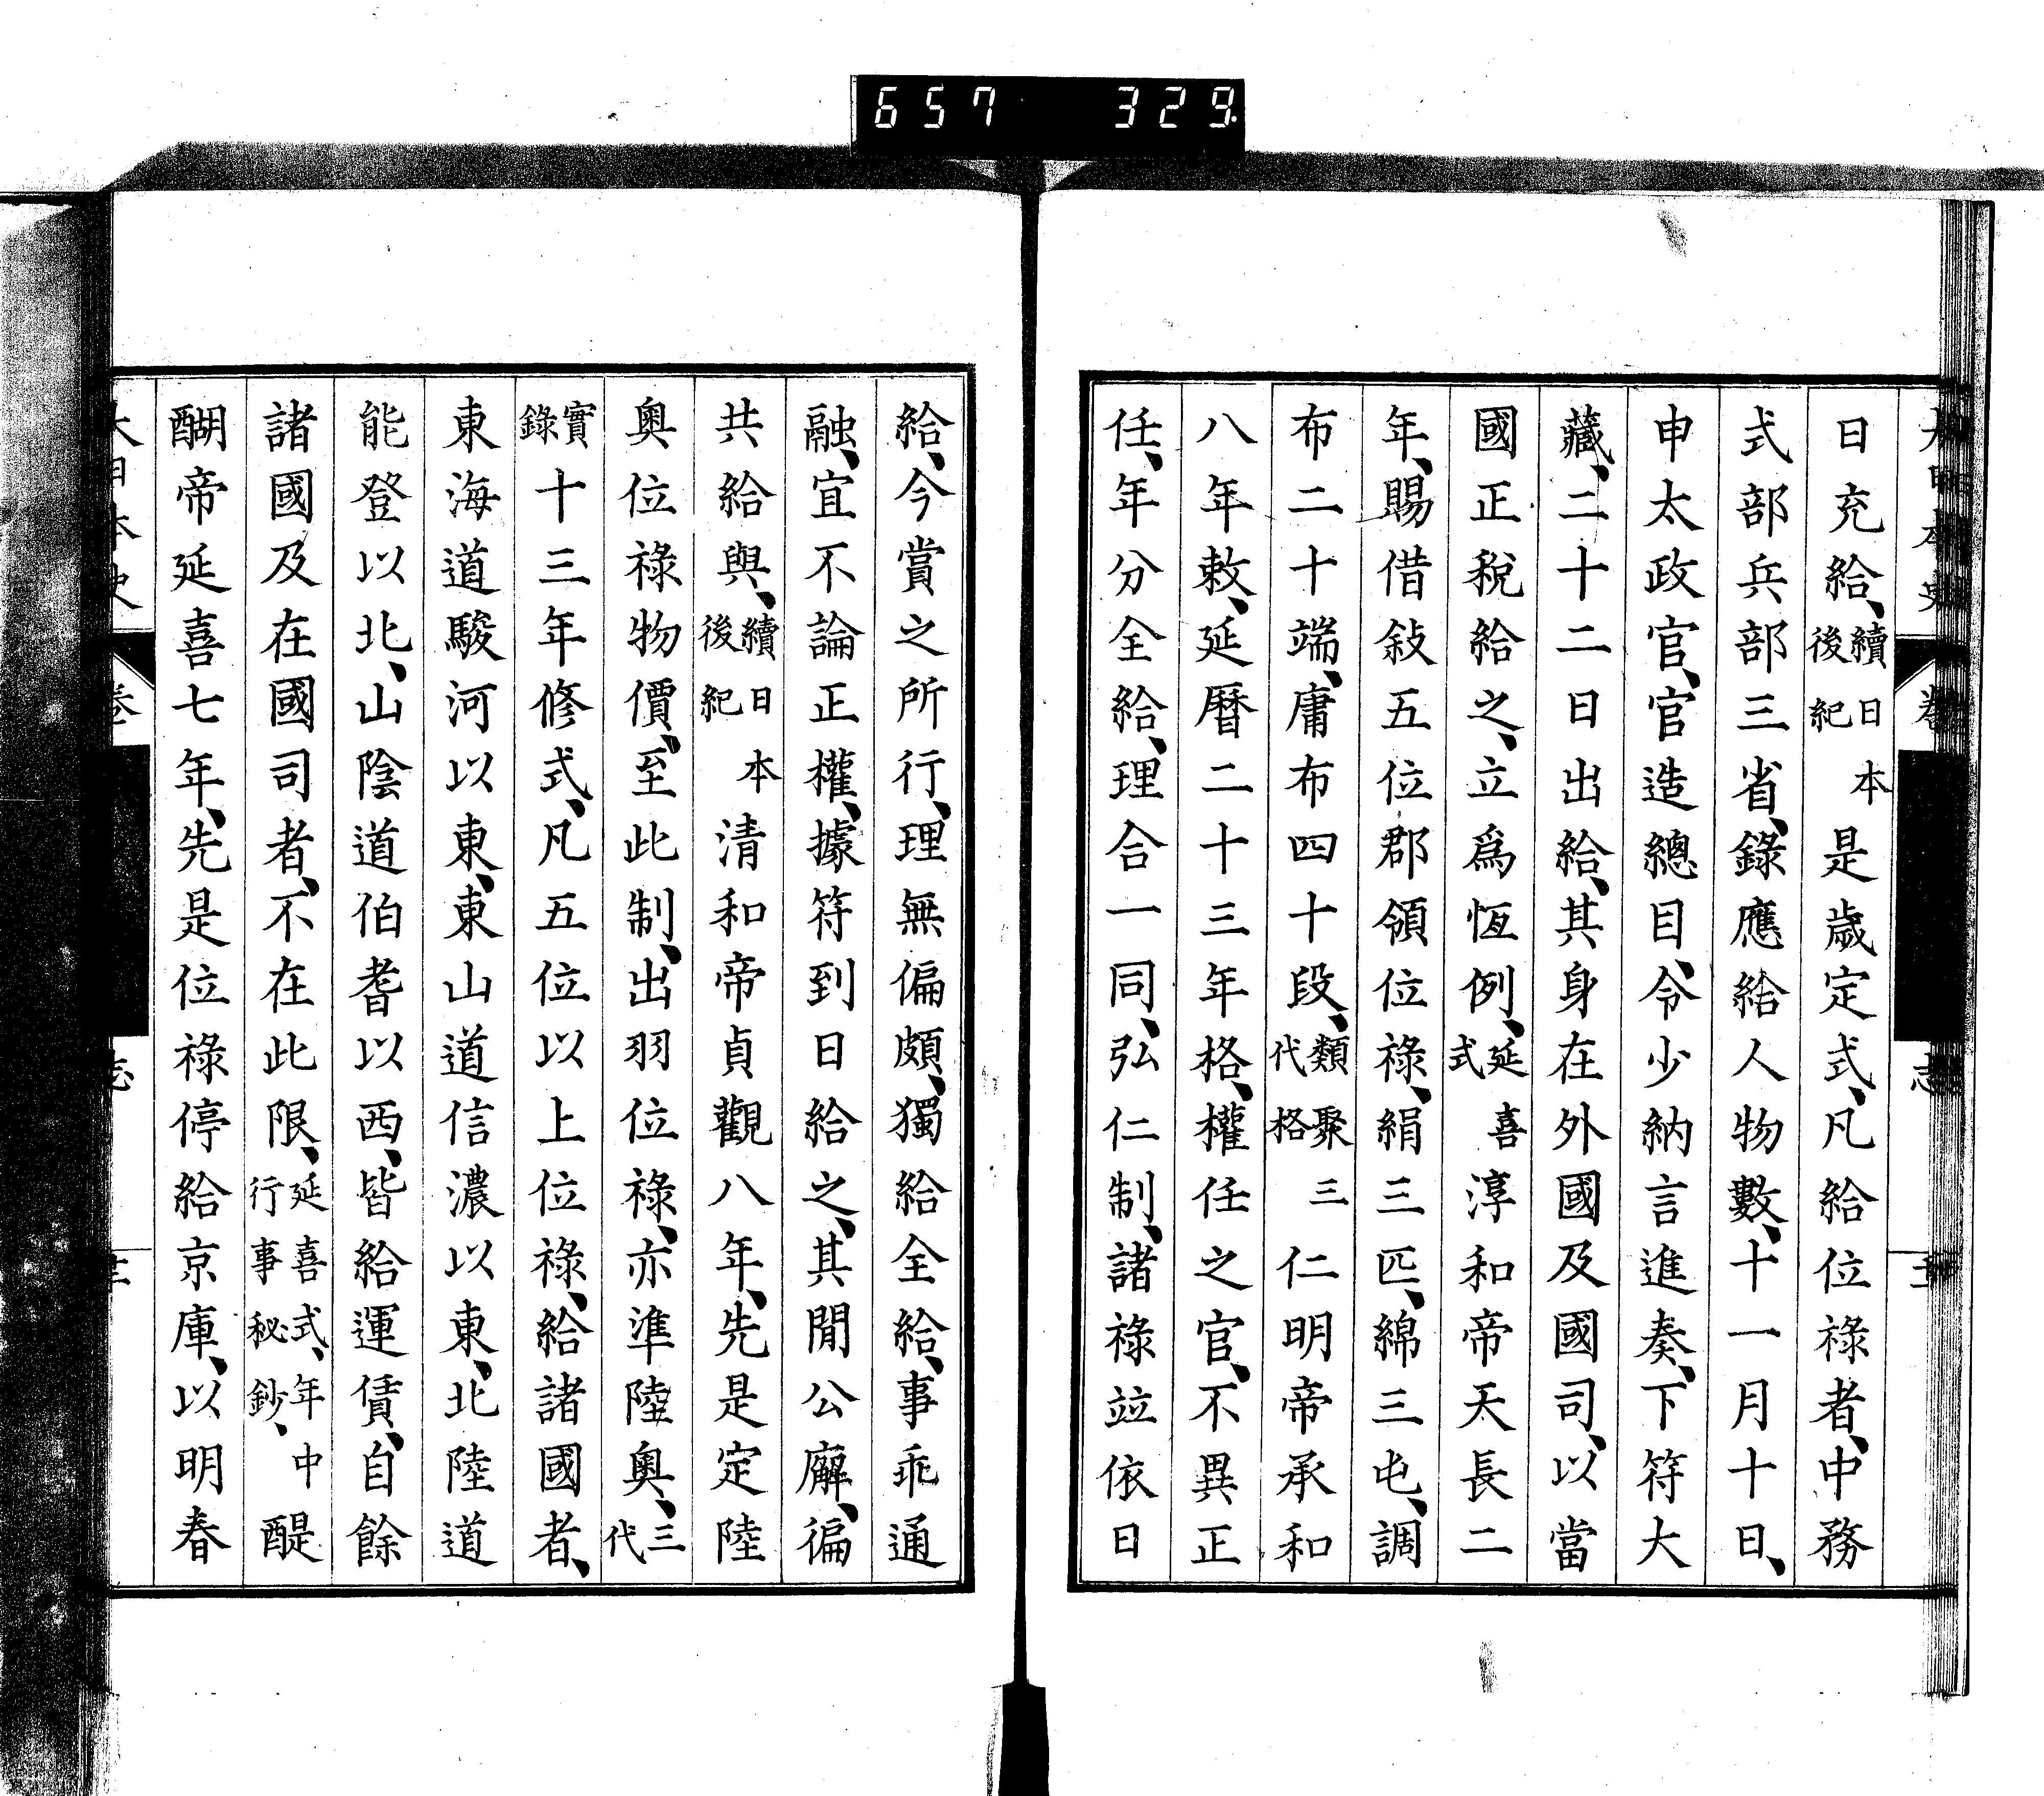 657 329
日充給、續日本後紀是歲定式、凡給位祿者、中務
式部兵部三省、錄應給人物數、十一月十日、
申太政官、官造總目、令少納言進奏、下符大
藏、二十二日出給、其身在外國及國司、以當
國正稅給之、立爲恆例、延喜式淳和帝天長二
年、賜借敍五位郡領位祿、絹三匹、綿三屯、調
布二十端、庸布四十段、類聚三代格仁明帝承和
八年敕、延曆二十三年格、權任之官、不異正
任、年分全給、理合一同、弘仁制、諸祿竝依日
給、今賞之所行、理無偏頗、獨給全給、事乖通
融、宜不論正權、據符到日給之、其閒公廨、徧
共給與、續日本後紀清和帝貞觀八年、先是定陸
奧位祿物價、至此制、出羽位祿、亦準陸奧、三代
實錄十三年修式、凡五位以上位祿、給諸國者、
東海道駿河以東、東山道信濃以東、北陸道
能登以北、山陰道伯耆以西、皆給運賃、自餘
諸國及在國司者、不在此限、延喜式、年中行事秘鈔、醍
醐帝延喜七年、先是位祿停給京庫、以明春
大日本史
志